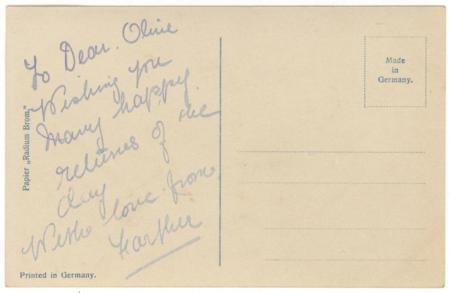 To Dear. Olive
Wishing you
many happy
returns of the
day
With love from
Papier „Radium Brom."
Printed in Germany.
Made
in
Germany.